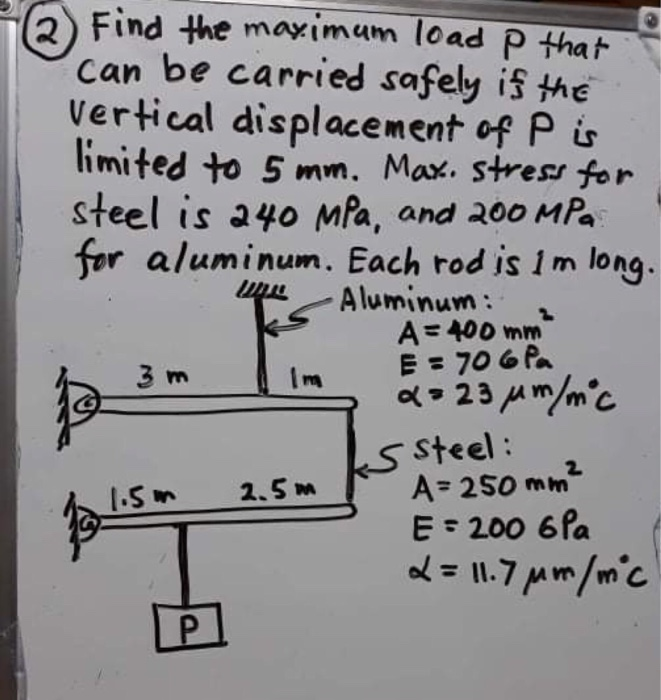 ② Find the maximum load P that
can be carried safely if the
vertical displacement of P is
limited to 5 mm. Max. stress for
steel is 240 MPa, and 200 MPa
for aluminum. Each rod is 1m long.
Aluminum:
A = 400 mm²
E = 70 GPa
α = 23 μm/m°C
3 m
1m
Steel:
A = 250 mm²
E = 200 GPa
α = 11.7 μm/m°C
1.5 m
2.5 m
P